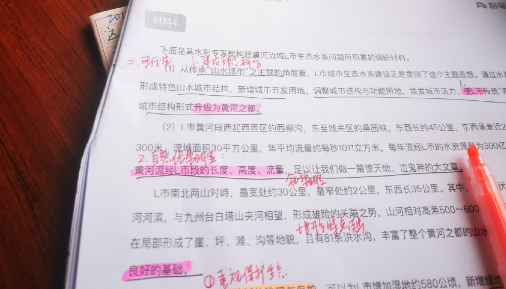 材料4
下面是某水利专家就构建黄河流域L市生态水系问题所积累的调研材料。
二、可行性
(1)从传承“山水城市”之主题的角度看,L市城市生态水系建设正是贯彻了这个主题思想。通过水
形成特色山水城市结构,新增城市开发用地,调整城市结构与功能用地,焕发城市活力,使L市传统
城市结构形式升级为黄河之都。
(2)L市黄河段西起西固区的西柳沟,东至城关区的桑园峡,东西长约45公里,东西落差近
300米,流域面积30平方公里,年平均流量约每秒101立方米,每年流经L市的水资源量为300亿
2.自然优势明显
黄河流经L市段的长度、高度、流量,足以让我们做一篇惊天地、泣鬼神的大文章。
L市南北两山对峙,最宽处约30公里,最窄处约2公里,东西长35公里,其中,
河河滨,与九州台白塔山夹河相望,形成雄险的关隘之势,山河相对高差500~600
地形
在局部形成了崖、坪、滩、沟等地貌,且有81条洪水沟,丰富了整个黄河之都的山水
良好的基础。
①重视保护生态
可以为L市增加湿地约580公顷,新增城